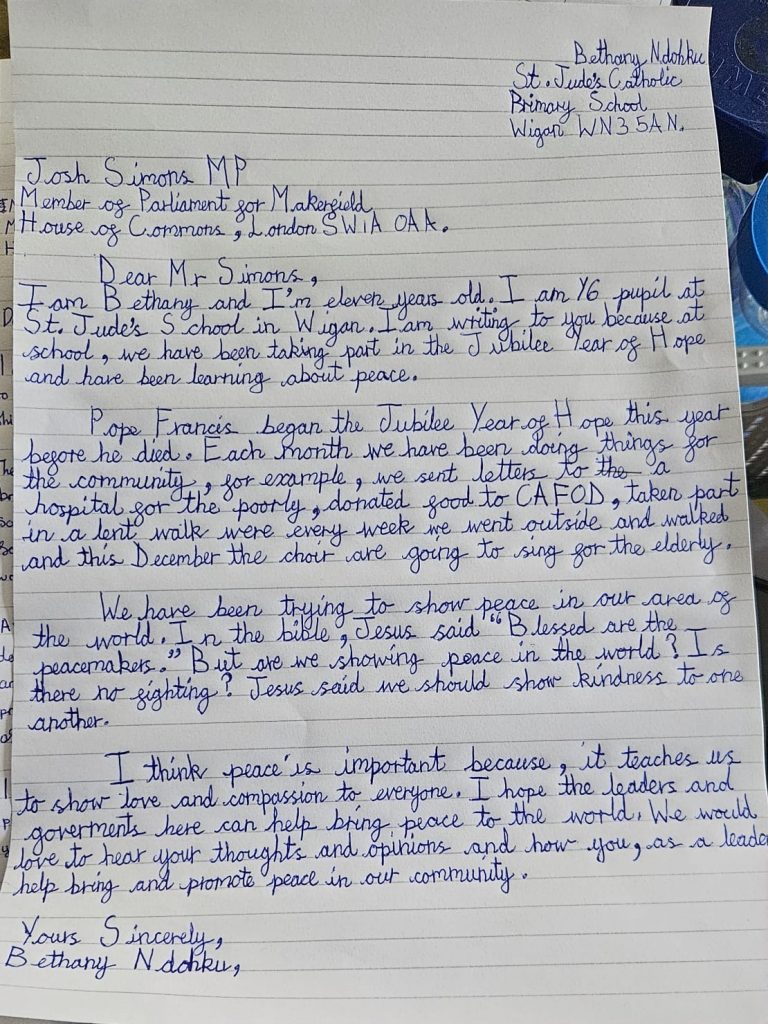 Bethany Ndohku
St. Jude's Catholic
Primary School
Wigan WN3 5AN.
Josh Simons MP
Member of Parliament for Makerfield
House of Commons, London SW1A 0AA.
Dear Mr Simons,
I am Bethany and I'm eleven years old. I am Y6 pupil at
St. Jude's School in Wigan. I am writing to you because at
school, we have been taking part in the Jubilee Year of Hope
and have been learning about peace.
Pope Francis began the Jubilee Year of Hope this year
before he died. Each month we have been doing things for
the community, for example, we sent letters to the a
hospital for the poorly, donated food to CAFOD, taken part
in a lent walk were every week we went outside and walked
and this December the choir are going to sing for the elderly.
We have been trying to show peace in our area of
the world. In the bible, Jesus said "Blessed are the
peacemakers." But are we showing peace in the world? Is
there no fighting? Jesus said we should show kindness to one
another.
I think peace is important because, it teaches us
to show love and compassion to everyone. I hope the leaders and
goverments here can help bring peace to the world. We would
love to hear your thoughts and opinions and how you, as a leader
help bring and promote peace in our community.
Yours Sincerely,
Bethany Ndohku,